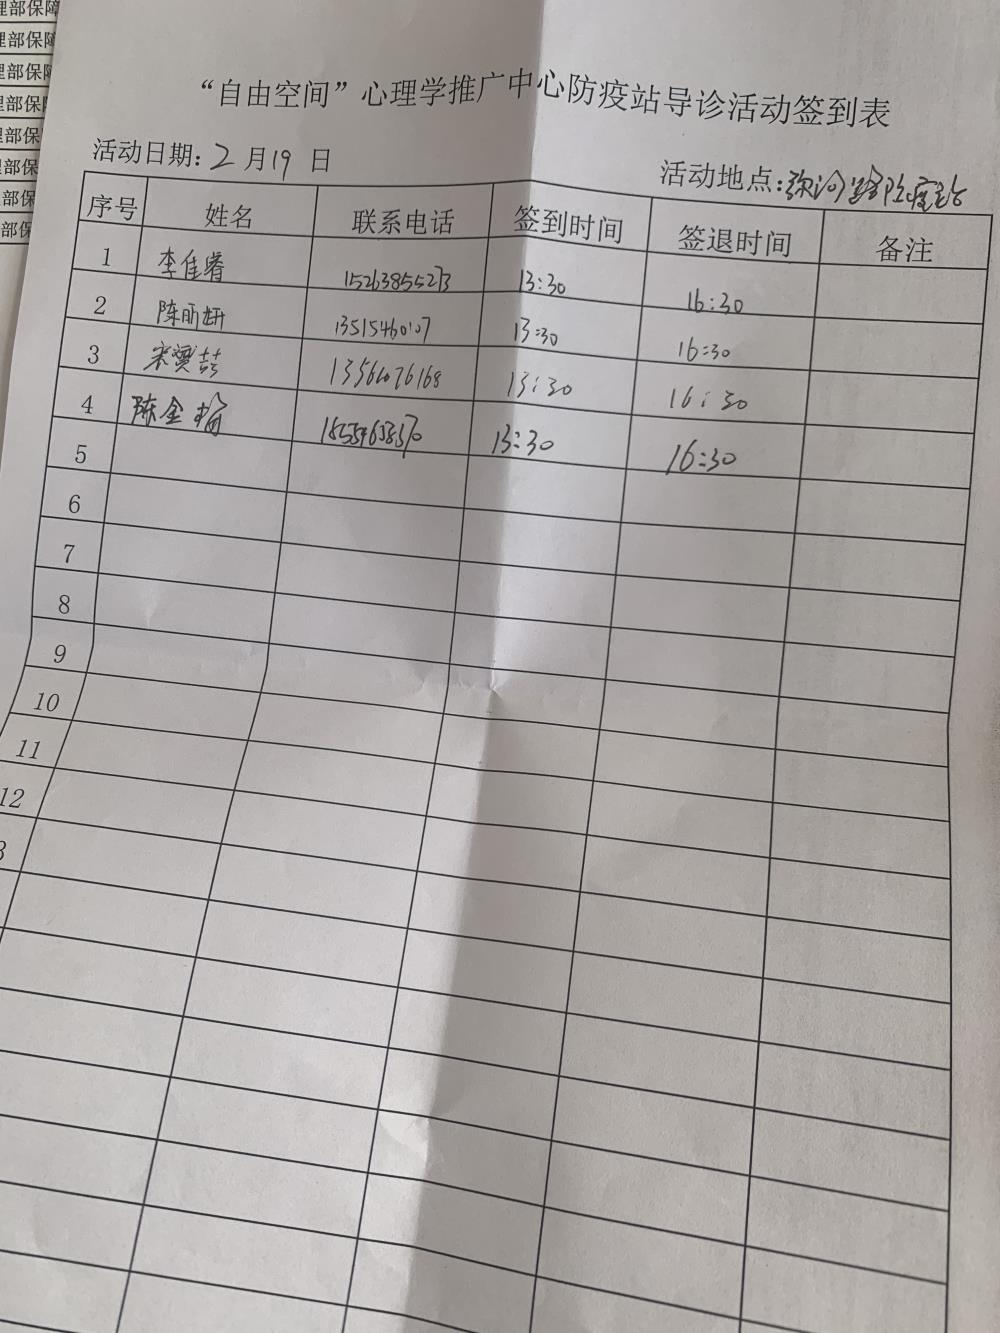 理部保障
理部保障
理部保障
理部保障
理部保
理部保
里部保
部保
“自由空间”心理学推广中心防疫站导诊活动签到表
活动日期: 2 月 19 日 活动地点: 弥河路防疫站
序号 姓名 联系电话 签到时间 签退时间 备注
1 李佳睿 15263855273 13:30 16:30
2 陈丽妍 13515460107 13:30 16:30
3 宋 喆 13561076168 13:30 16:30
4 陈金 13:30 16:30
5
6
7
8
9
10
11
12
3